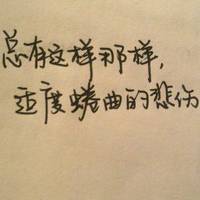 总有这样那样，
适度蜷曲的悲伤